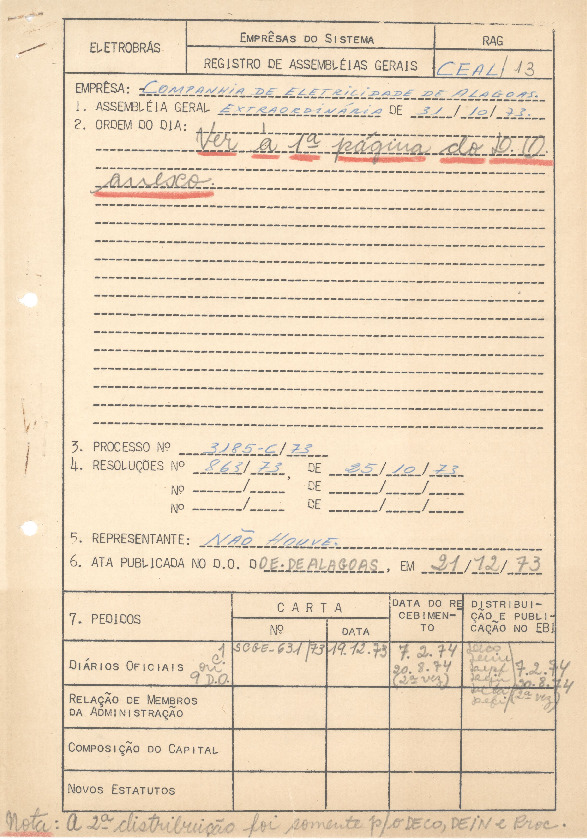 ELETROBRÁS
EMPRÊSAS DO SISTEMA
REGISTRO DE ASSEMBLÉIAS GERAIS
RAG
CEAL/13
EMPRÊSA: COMPANHIA DE ELETRILIDADE DE ALAGOAS.
1. ASSEMBLÉIA GERAL EXTRAORDINÁRIA DE 31/10/73.
2. ORDEM DO DIA:
Ver à 1ª página do D.O.
anexo.
3. PROCESSO Nº 3185-C/73
4. RESOLUÇÕES Nº 863/73, DE 25/10/73
Nº / DE / /
Nº / DE / /
5. REPRESENTANTE: NÃO HOUVE.
6. ATA PUBLICADA NO D.O. DO E. DE ALAGOAS, EM 21/12/73
7. PEDIDOS
CARTA
Nº
DATA
DATA DO RE
CEBIMEN-
TO
DISTRIBUI-
ÇÃO E PUBLI-
CAÇÃO NO EBI
DIÁRIOS OFICIAIS
9 D.O.
SCGE-631/73
19.12.73
7.2.74
20.8.74
(2ª vez)
7.2.74
20.8.74
(2ª vez)
RELAÇÃO DE MEMBROS
DA ADMINISTRAÇÃO
COMPOSIÇÃO DO CAPITAL
NOVOS ESTATUTOS
Nota: A 2ª distribuição foi somente p/o DECO, DEIN e Proc.